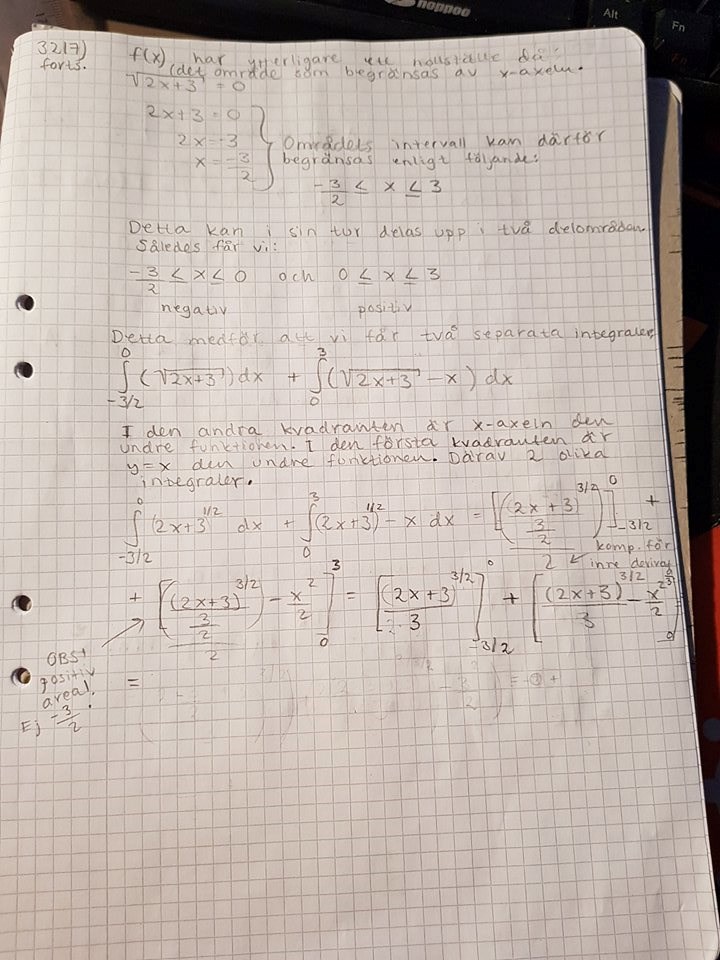 noppoo
Alt
Fn
3217)
forts.
f(x) har ytterligare ett nollställe då:
(det område som begränsas av x-axeln.
√2x+3 = 0
2x+3 = 0
2x = -3
x = -3/2
Områdets intervall kan därför
begränsas enligt följande:
-3/2 ≤ x ≤ 3
Detta kan i sin tur delas upp i två delområden.
Således får vi:
-3/2 ≤ x ≤ 0 och 0 ≤ x ≤ 3
negativ positiv
Detta medför att vi får två separata integraler
∫_{-3/2}^{0} (√2x+3) dx + ∫_{0}^{3} (√2x+3 - x) dx
I den andra kvadranten är x-axeln den
undre funktionen. I den första kvadranten är
y=x den undre funktionen. Därav 2 olika
integraler.
∫_{-3/2}^{0} (2x+3)^{1/2} dx + ∫_{0}^{3} (2x+3)^{1/2} - x dx = [((2x+3)^{3/2} / (3/2)) / 2]_{-3/2}^{0} +
komp. för
inre derivat
+ [((2x+3)^{3/2} / (3/2)) / 2 - x^2/2]_{0}^{3} = [(2x+3)^{3/2} / 3]_{-3/2}^{0} + [(2x+3)^{3/2} / 3 - x^2/2]_{0}^{3}
OBS!
positiv
areal.
Ej -3/2
=